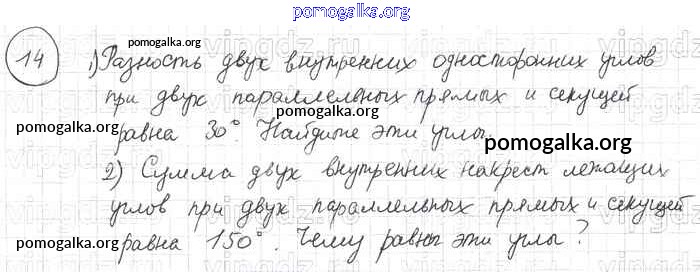 pomogalka.org
14 pomogalka.org
1) Разность двух внутренних односторонних углов
при двух параллельных прямых и секущей
pomogalka.org pomogalka.org
равна 30°. Найдите эти углы.
pomogalka.org
2) Сумма двух внутренних накрест лежащих
pomogalka.org
углов при двух параллельных прямых и секущей
pomogalka.org равна 150°. Чему равны эти углы?
pomogalka.org